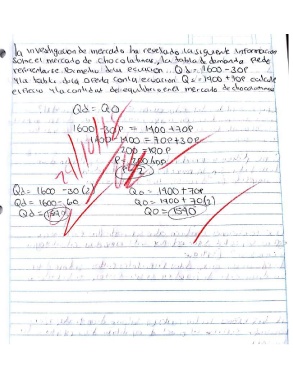 la investigacion de mercado ha revelado la siguiente informacion
sobre el mercado de chocolatinas, la tabla de demanda Pede
representarse Por medio de la ecuacion... Qd = 1600 - 30P
y la tabla de la oferta con la ecuacion Qs = 1400 + 70P calcule
el Precio y la cantidad de equilibrio en el mercado de chocolatinas
Qd = QO
1600 - 30P = 1400 + 70P
1600 - 1400 = 70P + 30P
200 = 100P
P = 2
Qd = 1600 - 30(2) QO = 1400 + 70P
Qd = 1600 - 60 QO = 1400 + 70(2)
Qd = 1540 QO = 1540